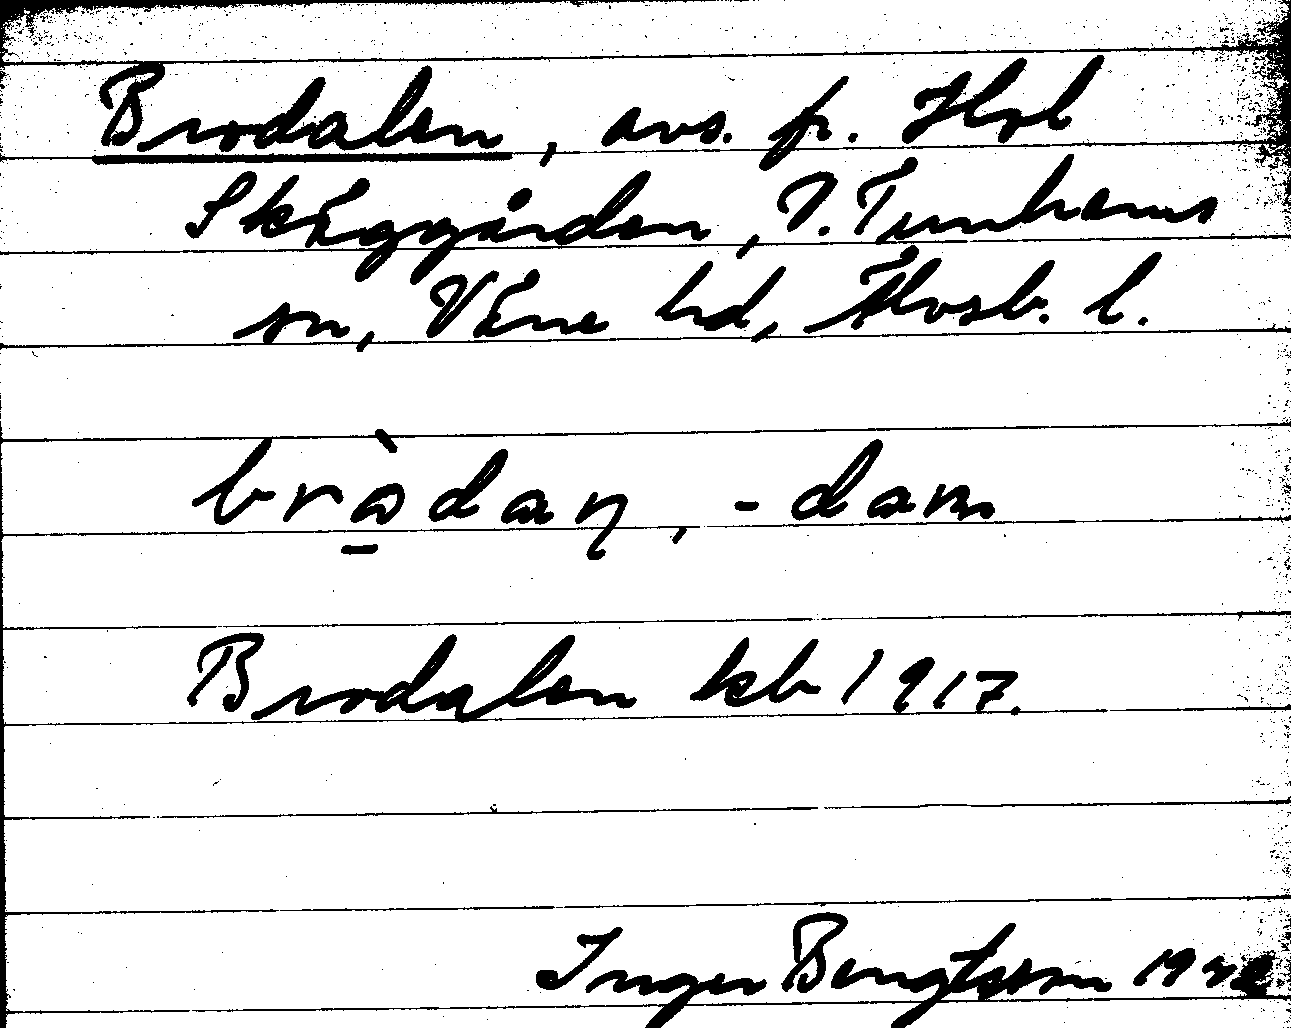 Brodalen, avs. fr. Hol
Skäggården, V. Tunhems
sn, Väne hd, Älvsb. l.
bròdaη, -dam
Brodalen kb 1917.
Inger Bengtsson